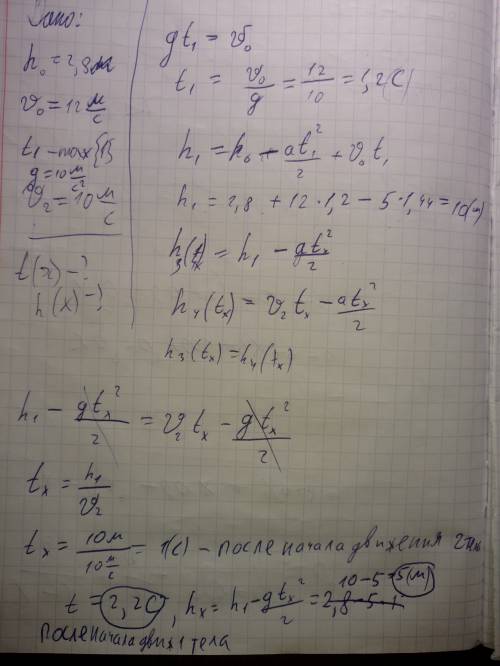 Дано:
h₀ = 2,8м
v₀ = 12 м/с
t₁ - max{h}
g = 10 м/с²
v₂ = 10 м/с
t(x) - ?
h(x) - ?
gt₁ = v₀
t₁ = v₀/g = 12/10 = 1,2(с)
h₁ = h₀ - at₁²/2 + v₀t₁
h₁ = 2,8 + 12·1,2 - 5·1,44 = 10(м)
h₃(tₓ) = h₁ - gtₓ²/2
h₄(tₓ) = v₂tₓ - atₓ²/2
h₃(tₓ) = h₄(tₓ)
h₁ - gtₓ²/2 = v₂tₓ - gtₓ²/2
tₓ = h₁/v₂
tₓ = 10м/10 м/с = 1(с) - после начала движения 2 тела
t = 2,2с, hₓ = h₁ - gtₓ²/2 = 2,8-5·1 10-5=5(м)
после начала движ 1 тела